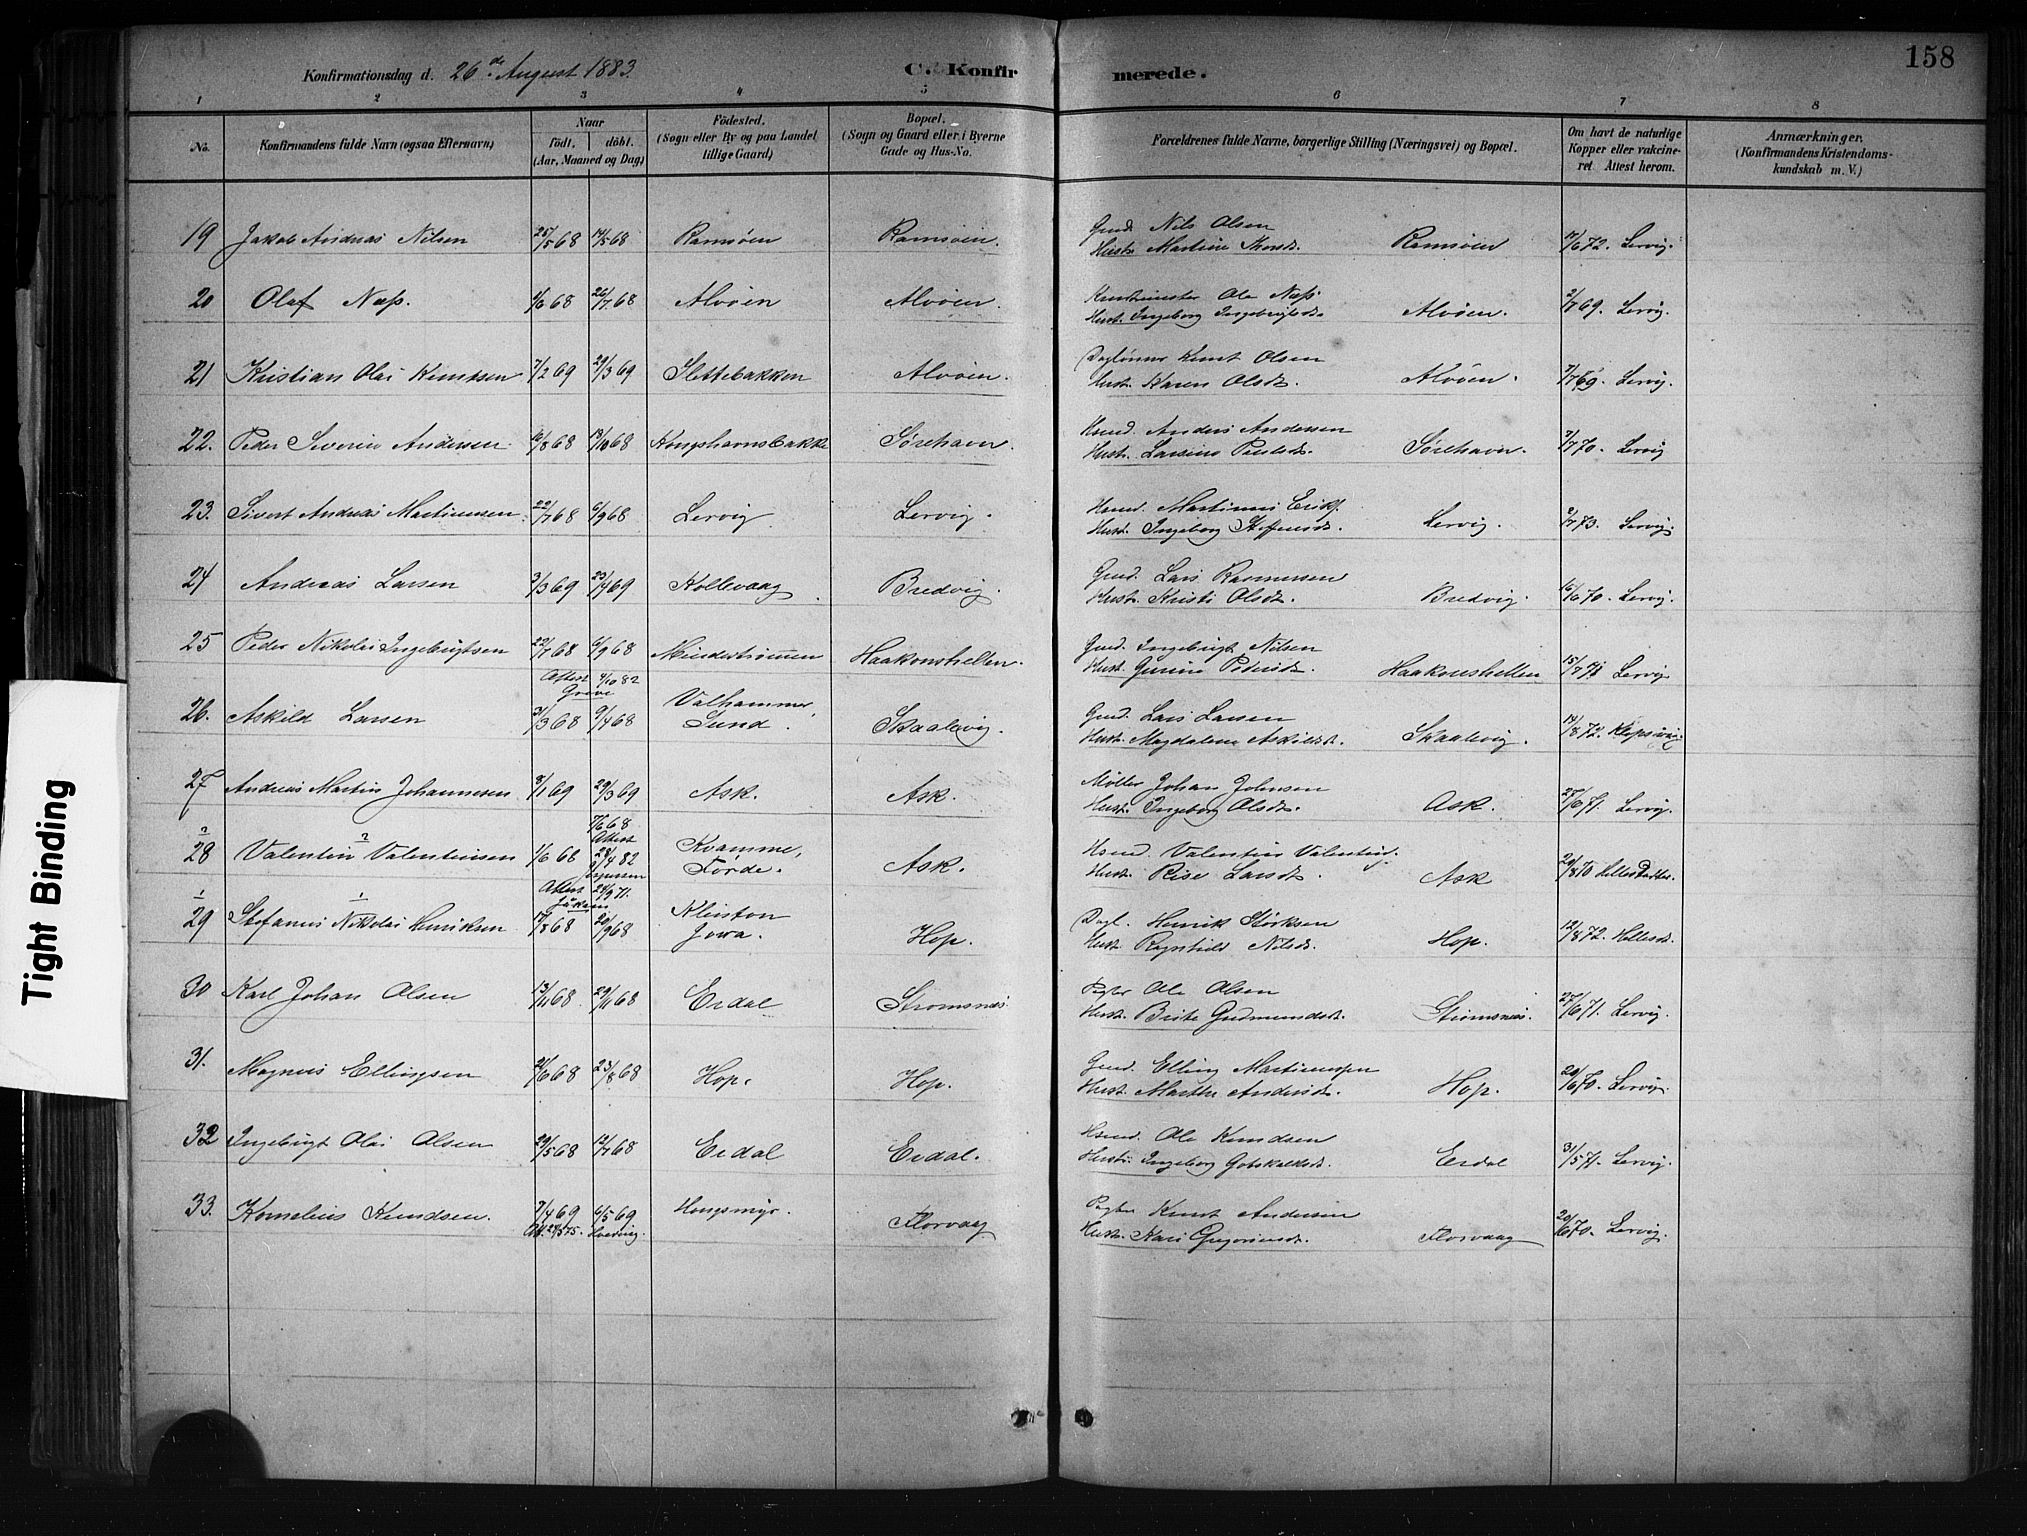 158
Konfirmationsdag d. 26de August 1883.
C. Konfirmerede.
1 2 3 4 5 6 7 8
No.
Konfirmandens fulde Navn (ogsaa Efternavn)
Naar
Födt. döbt.
(Aar, Maaned og Dag)
Födested.
(Sogn eller By og paa Landet
tillige Gaard)
Bopæl.
(Sogn og Gaard eller i Byerne
Gade og Hus-No.
Forældrenes fulde Navne, borgerlige Stilling (Næringsvei) og Bopæl.
Om havt de naturlige
Kopper eller vakcine-
ret Attest herom.
Anmærkninger.
(Konfirmandens Kristendoms-
kundskab m. V.)
19 Jakob Andreas Nilsen 25/5 68 Ramsöen Ramsöen. Gmd. Nils Olsen
Hust. Martine Ramsöen 17/6 72. Lervig.
20 Olaf Næss. 1/6 68 26/7 68 Alvöen Alvöen. Ole Næss
Hust. Ingeborg Alvöen. 2/7 69. Lervig.
21 Kristian Olai Knutsen 7/2 69 29/3 69 Slettebakken Alvöen. Daglönner Knut Olsen
Hust. Karen Olsdt. Alvöen. 7/7 69. Lervig.
22. Peder Severin Andersen. 16/8 68 18/10 68 Kongshavnsbakke Sörehavn. Husmd. Anders Andersen
Hust. Larsine Paulsdt. Sörehavn. 7/7 70. Lervig
23. Sivert Andreas Martinusen. 22/7 68 6/9 68 Lervig Lervig. Husmd. Martinus Eriks.
Hust. Ingeborg Steffensdt. Lervig. 2/7 73. Lervig.
24 Andreas Larsen 3/3 69 25/4 69 Kollevaag Bredvig. Gmd. Lars Rasmussen
Hust. Kristi Olsdt. Bredvig. 16/6 70. Lervig.
25 Peder Nikolai Ingebrigtsen 22/7 68 6/9 68 Mindeströmmen Haakonshellen. Gmd. Ingebrigt Nilsen
Hust. Gurine Pedersdt. Haakonshellen 15/7 71 Lervig
Attest 4/10 82
Greve
26. Askild Larsen 3/3 68 9/4 68 Valhammer,
Sund. Skaalevig. Gmd. Lars Larsen
Hust. Magdalena Askildsdt. Skaalevig. 14/8 72.
27 Andreas Martin Johannesen 8/1 69 29/3 69 Ask. Ask. Möller Johan Johnsen
Hust. Ingeborg Olsdt. Ask. 27/6 71. Lervig.
7/6 68
Attest
28 Valentin Valentinsen 1/6 68 28/4 82 Kvamme,
Förde. Ask. Husmd. Valentin Valentins.
Hust. Larsdt. Ask 20/8 70
Attest 24/9 71.
29 Stefanus Nikolai Henriksen 17/8 68 20/9 68 Hop. Dagl. Henrik Störksen
Hust. Ragnhild Nilsdt. Hop. 12/8 72.
30 Karl Johan Olsen 13/11 68 29/11 68 Erdal Strömsnæs. Pagter Ole Olsen
Hust. Brite Gudmundsdt. Strömsnæs. 27/6 71. Lervig.
31. Magnus Ellingsen 21/6 68 23/8 68 Hop. Hop. Gmd. Elling Martinussen
Hust. Marthe Andersdt. Hop. 20/6 70. Lervig
32 Ingebrigt Olai Olsen 29/5 68 12/7 68 Erdal Erdal. Husmd. Ole Knudsen
Hust. Ingeborg Gotskalksdt. Erdal 31/5 71. Lervig.
33. Kornelius Knudsen. 7/4 69 6/5 69 Hongsmyr. Florvaag Pagter Knut Andersen
Hust. Kari Gregoriusdt. Florvaag 20/6 70. Lervig.
Tight Binding